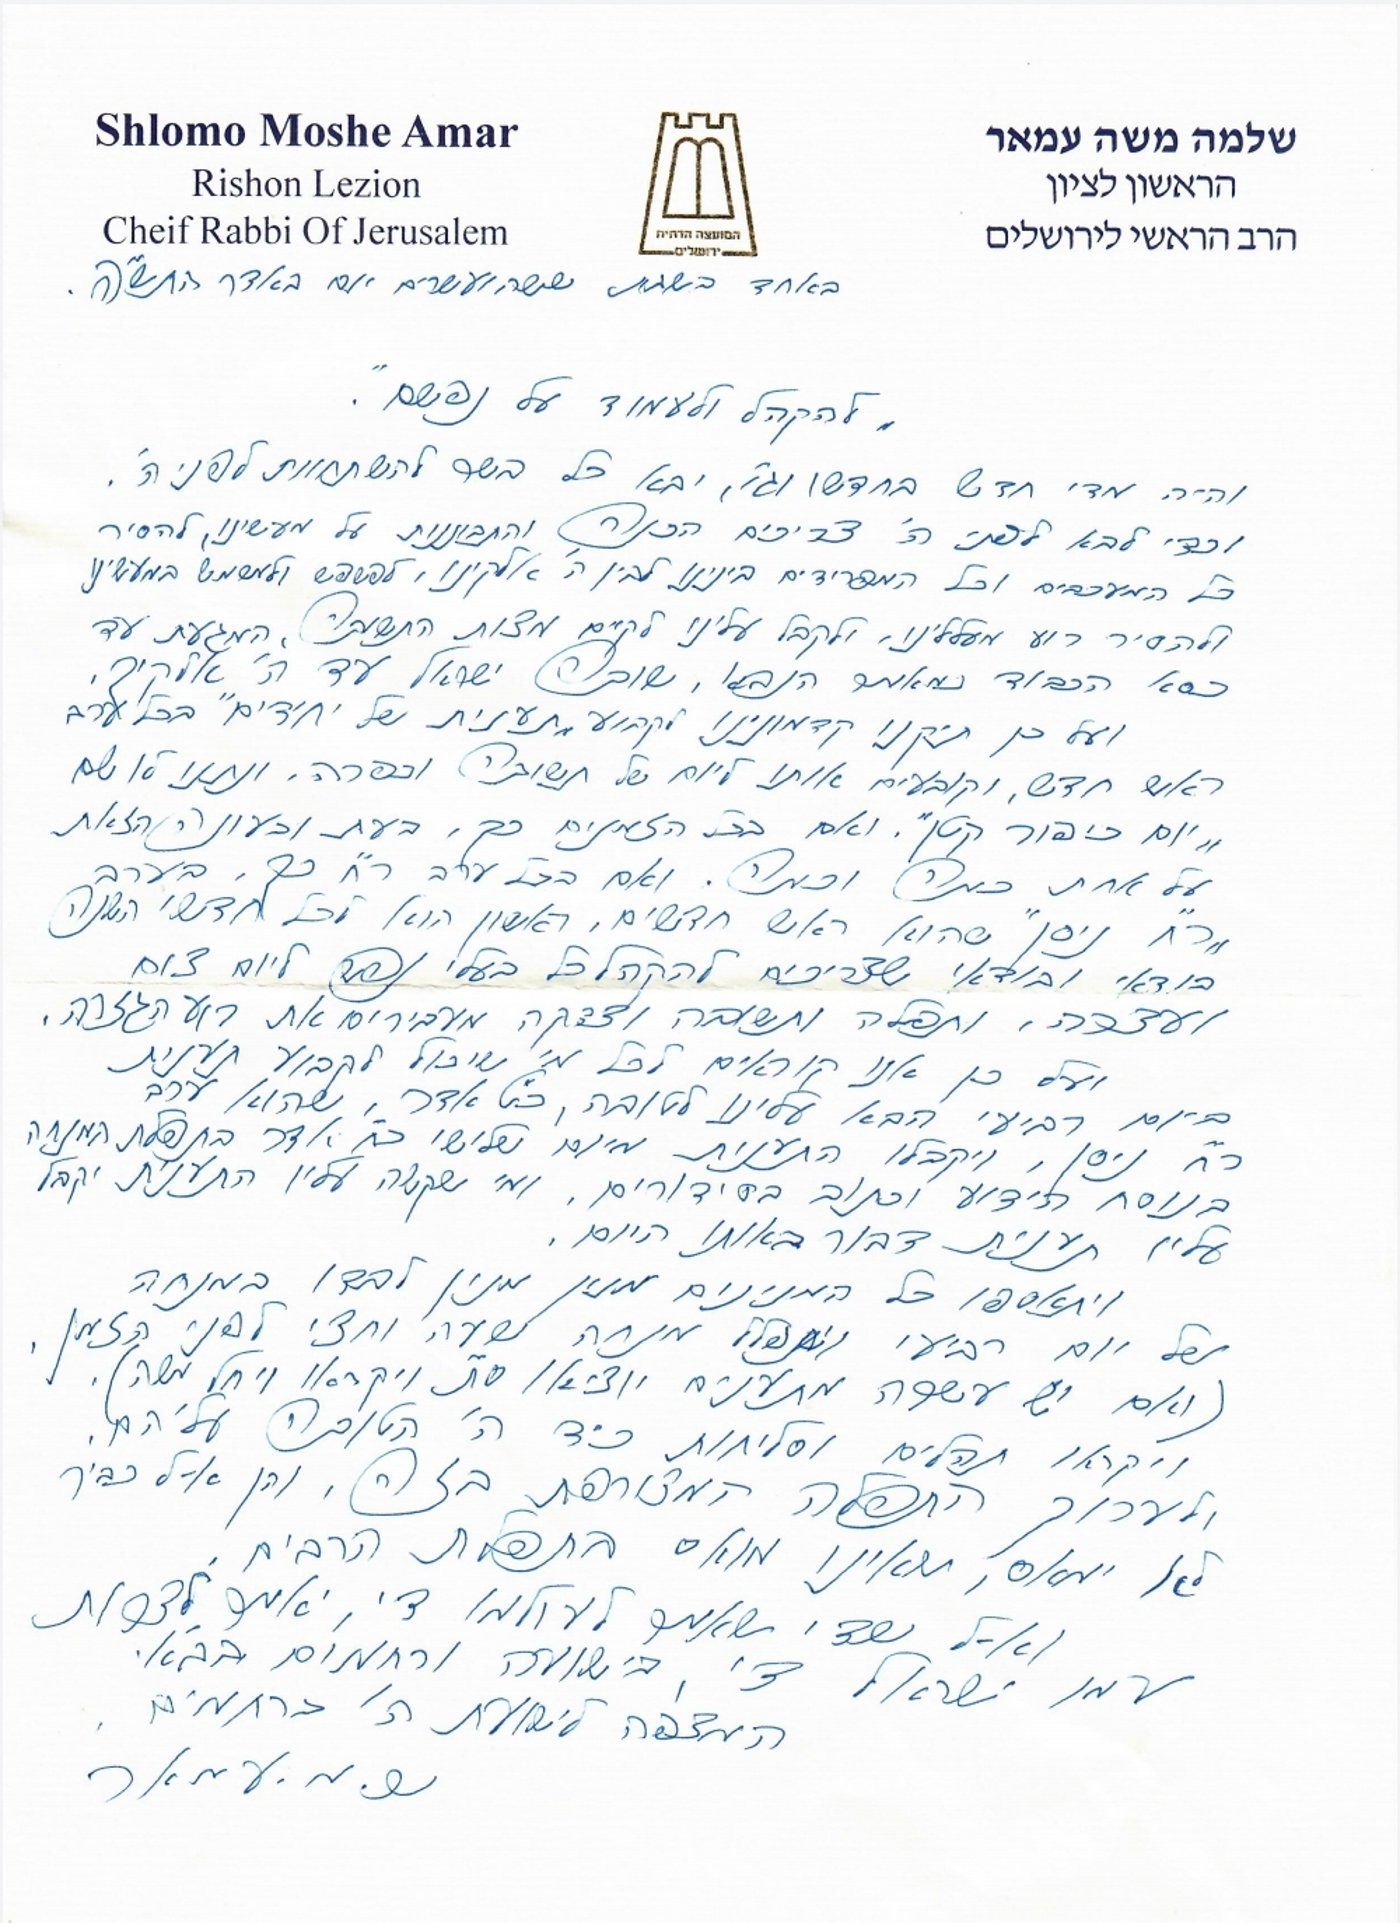 Shlomo Moshe Amar
Rishon Lezion
Cheif Rabbi Of Jerusalem
המועצה הדתית
ירושלים
שלמה משה עמאר
הראשון לציון
הרב הראשי לירושלים
באחד בשבת ששה ועשרים יום באדר התש"פ.
"להקהל ולעמוד על נפשם".
והיה מדי חדש בחדשו וגו', יבא כל בשר להשתחוות לפני ה'.
וכדי לבא לפני ה' צריכים הכנה והתבוננות על מעשינו, להסיר
כל המעכבים וכל המפרידים בינינו לבין ה' אלקינו, לפשפש ולמשמש במעשינו
ולהסיר רוע מעללינו, ולקבל עלינו לקיים מצות התשובה, המגעת עד
כסא הכבוד כמאמר הנביא, שובה ישראל עד ה' אלקיך,
ועל כן תיקנו קדמונינו לקבוע "תענית של יחידים" בכל ערב
ראש חדש, וקובעים אותו ליום של תשובה וכפרה, ונתנו לו שם
"יום כיפור קטן". ואם בכל הזמנים כך, בעת ובעונה הזאת
על אחת כמה וכמה. ואם בכל ערב ר"ח כך, בערב
"ר"ח ניסן" שהוא ראש חדשים, ראשון הוא לכל חדשי השנה
בודאי ובודאי שצריכים להקהל כל בעלי נפש ליום צום
ועצרה, ותפלה ותשובה וצדקה מעבירים את רוע הגזרה.
ועל כן אנו קוראים לכל מי שיכול לקבוע תענית
ביום רביעי הבא עלינו לטובה, כ"ט אדר, שהוא ערב
ר"ח ניסן, ויקבלו התענית מיום שלישי כ"ח אדר בתפלת המנחה
בנוסח הידוע וכתוב בסידורים, ומי שקשה עליו התענית יקבל
עליו תענית דבור באותו היום.
ויתאספו כל המנינים מנין מנין לבדו במנחה
של יום רביעי ותפלל מנחה שעה וחצי לפני הזמן,
(ואם יש עשרה מתענים יוציאו ס"ת ויקראו ויחל משה).
ויקראו תהלים וסליחות כיד ה' הטובה עליהם,
ולערוך התפלה המצורפת בזה, והן א-ל כביר
לא ימאס, שאינו מואס בתפלת הרבים,
וא-ל שדי שאמר לעולמו די, יאמר לצרות
עמו ישראל די, בישועה ורחמים בב"א.
המצפה לישועת ה' ברחמים,
ש.מ.עמאר